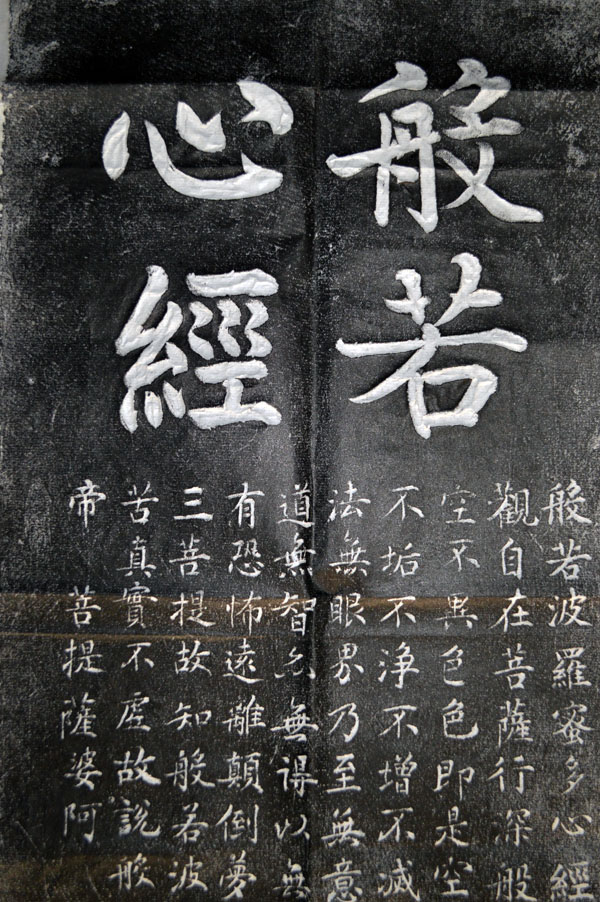 般若
心經
般若波羅蜜多心經
觀自在菩薩行深般
空不異色色即是空
不垢不淨不增不減
法無眼界乃至無意
道無智亦無得以無
有恐怖遠離顛倒夢
三菩提故知般若波
苦真實不虛故說般
帝　菩提薩婆阿